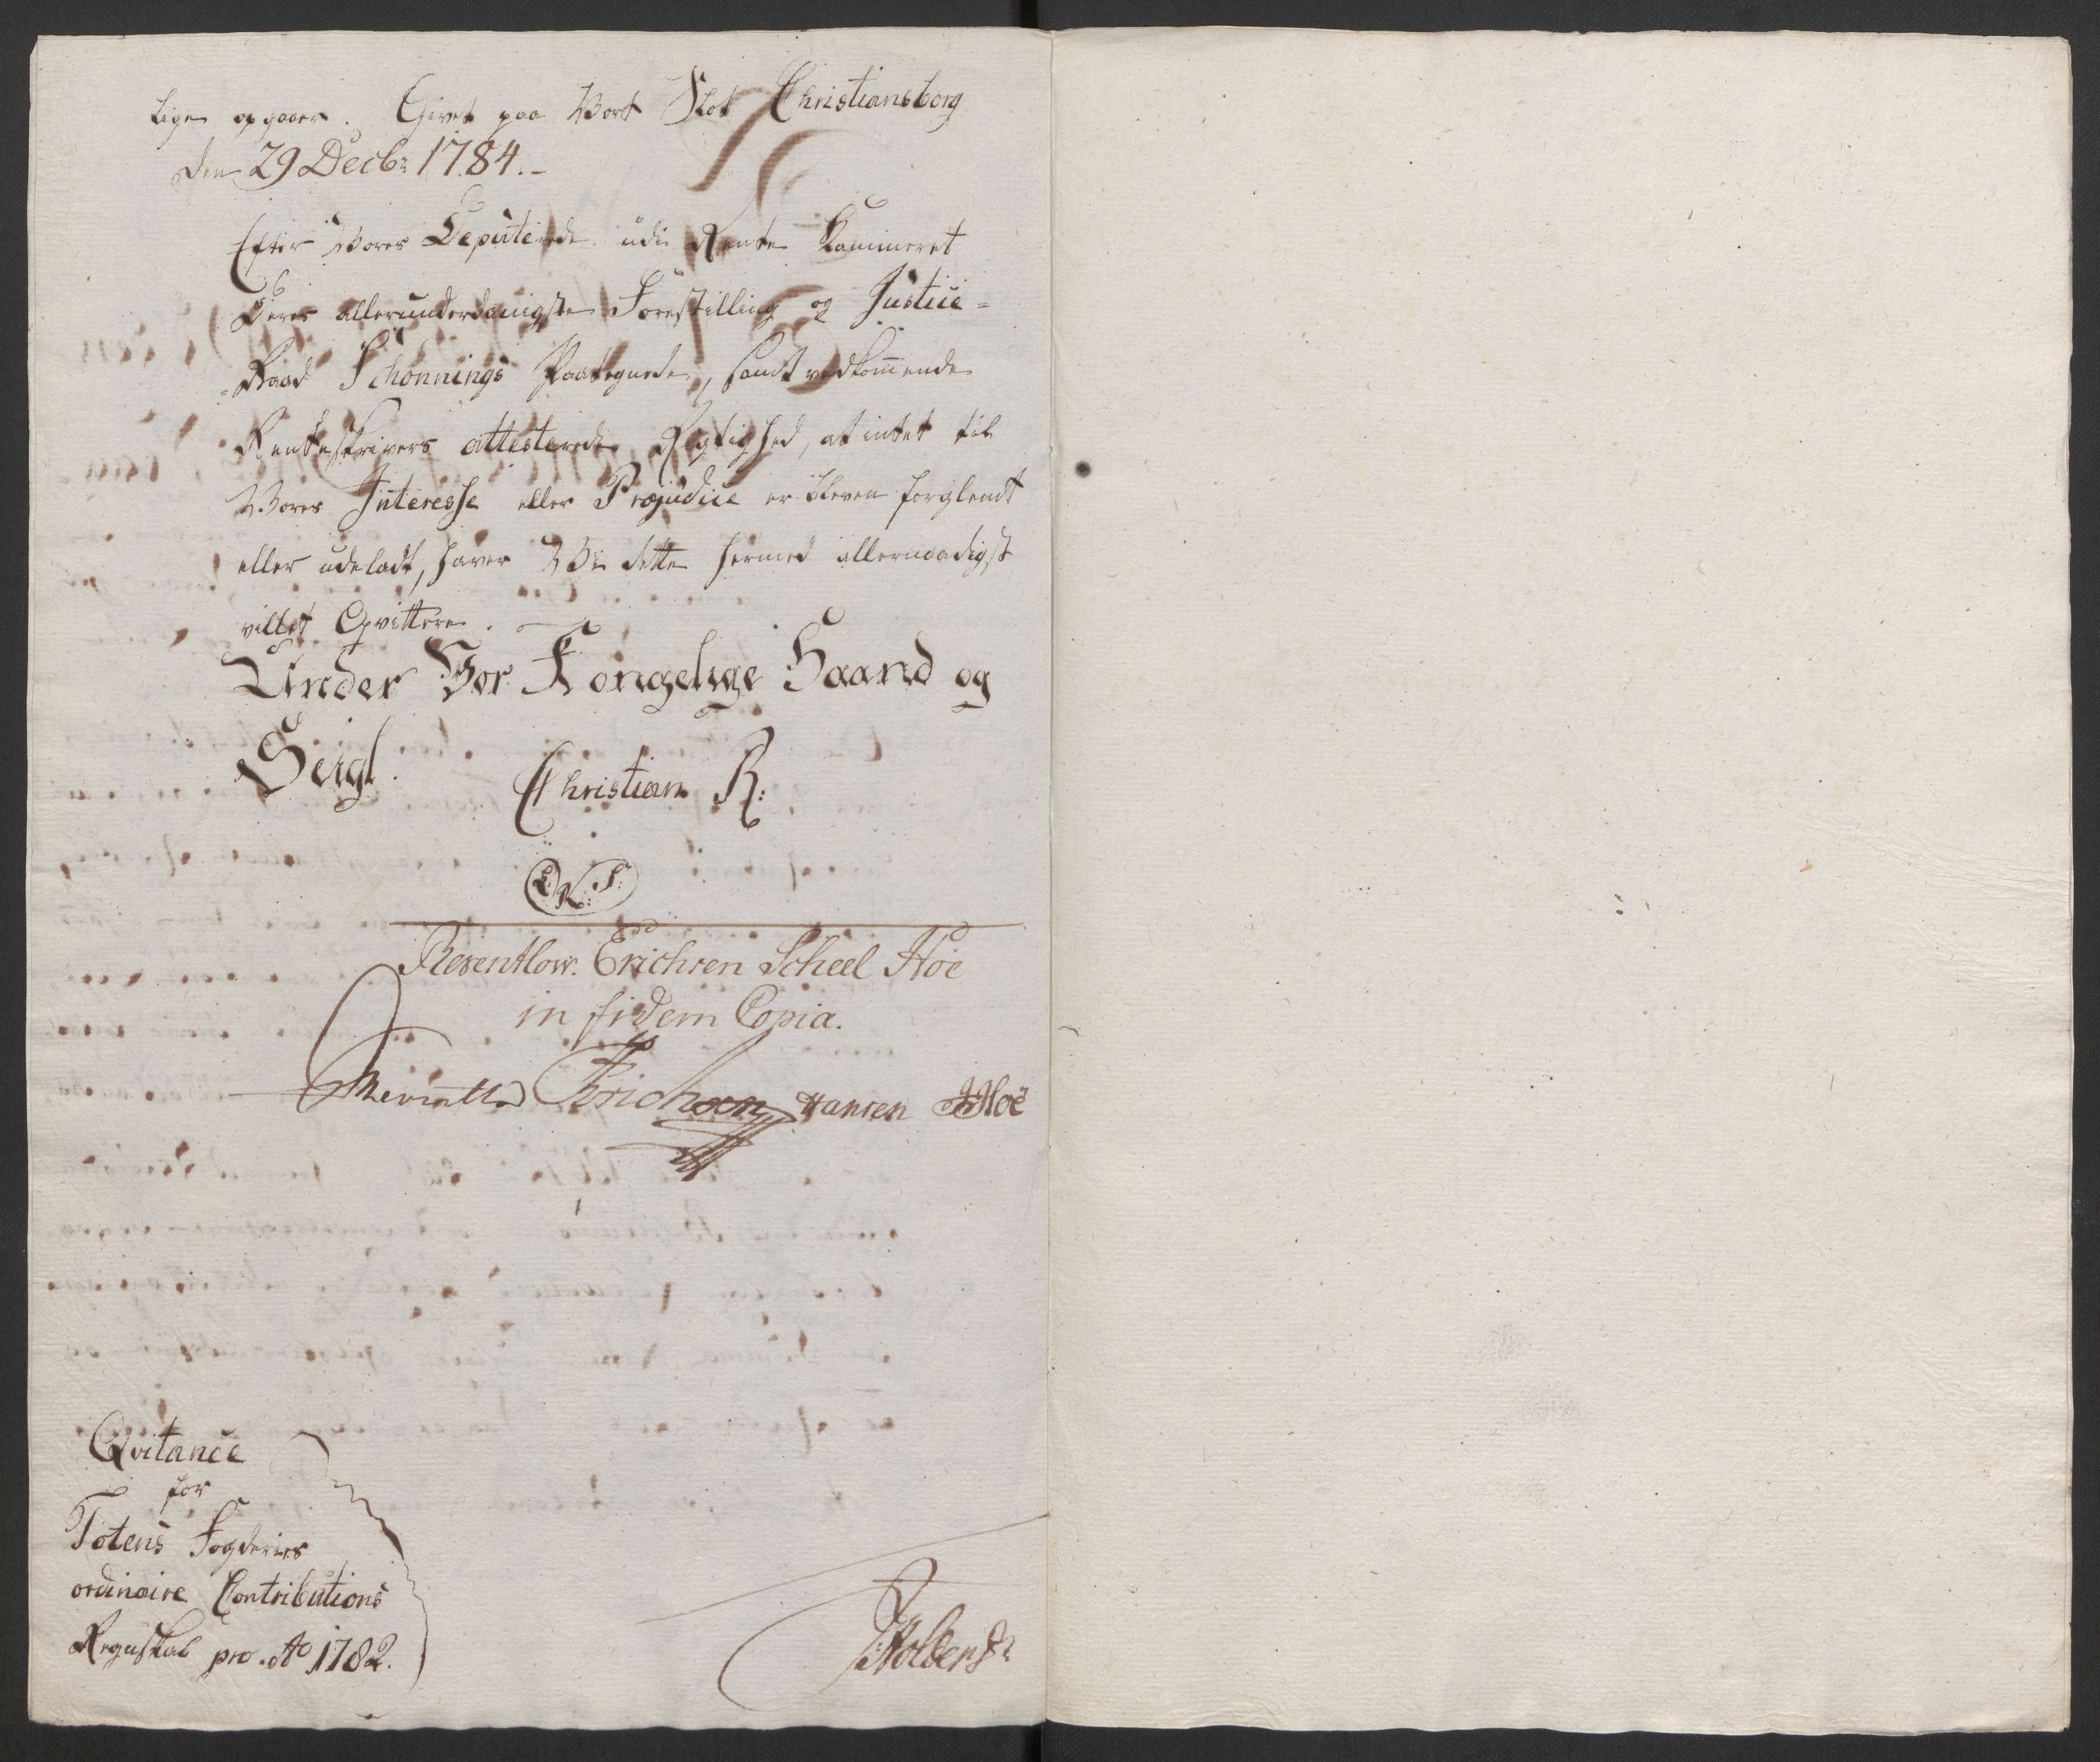 lige opgaaer. Givet paa Vort Slot Christiansborg
den 29 Decbr 1784.-
Efter Vores Deputerede udi Rente Kammeret
Deres allerunderdanigste Forestilling og Justice-
=Raad Schønnings Paategnede, samt vedkommende
Renteskrivers attesterede Rigtighed, at intet til
Vores Interesse eller Præjudice er bleven forglemt
eller udeladt, haver Vi dette hermed allernaadigst
villet Qvittere.
Under Vor Kongelige Haand og
Seigl.
Christian R:
L: R: S:
Reventlow. Erichsen Scheel Hoë
in fidem Copia.
Reventlow Erichsen Hansen Hoë
Qvitance
for
Totens Fogderies
ordinaire Contributions
Regnskab pro Ao 1782.